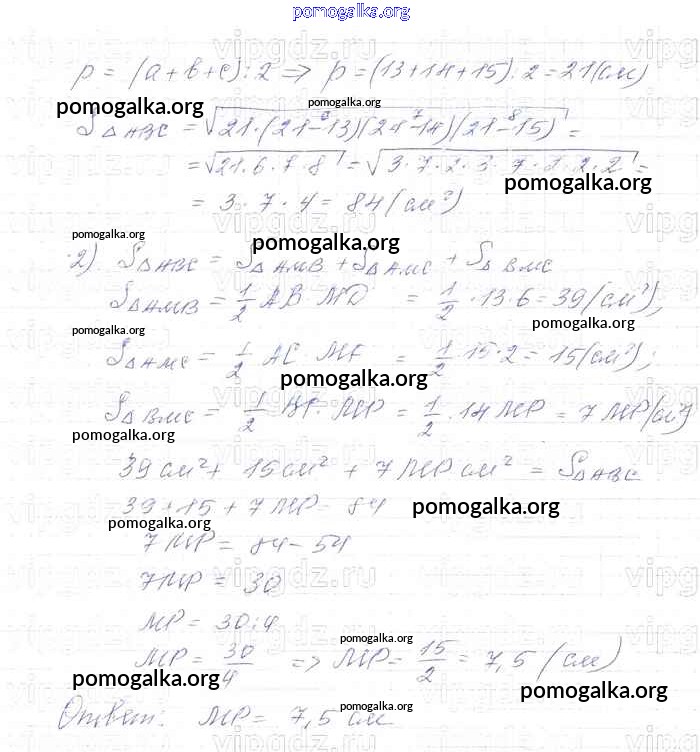 pomogalka.org
p = (a + b + c) : 2 => p = (13 + 14 + 15) : 2 = 21 (см)
pomogalka.org pomogalka.org
S△ABC = √21·(21-13)(21-14)(21-15) =
= √21·6·7·8 = √3·7·2·3·7·2·2·2 =
pomogalka.org
= 3·7·4 = 84 (см²)
pomogalka.org
pomogalka.org
2). S△ABC = S△AMB + S△AMC + S△BMC
S△AMB = 1/2 AB · MD = 1/2 · 13·6 = 39 (см²);
pomogalka.org
pomogalka.org
S△AMC = 1/2 AC · MF = 1/2 · 15·2 = 15 (см²);
pomogalka.org
S△BMC = 1/2 BC · MP = 1/2 · 14 MP = 7 MP (см²)
pomogalka.org
39 см² + 15 см² + 7 MP см² = S△ABC
39 + 15 + 7 MP = 84
pomogalka.org
pomogalka.org
7 MP = 84 - 54
7 MP = 30
vipgdz.ru
MP = 30 : 4
pomogalka.org
MP = 30/4 => MP = 15/2 = 7,5 (см)
pomogalka.org pomogalka.org
Ответ: MP = 7,5 см
pomogalka.org